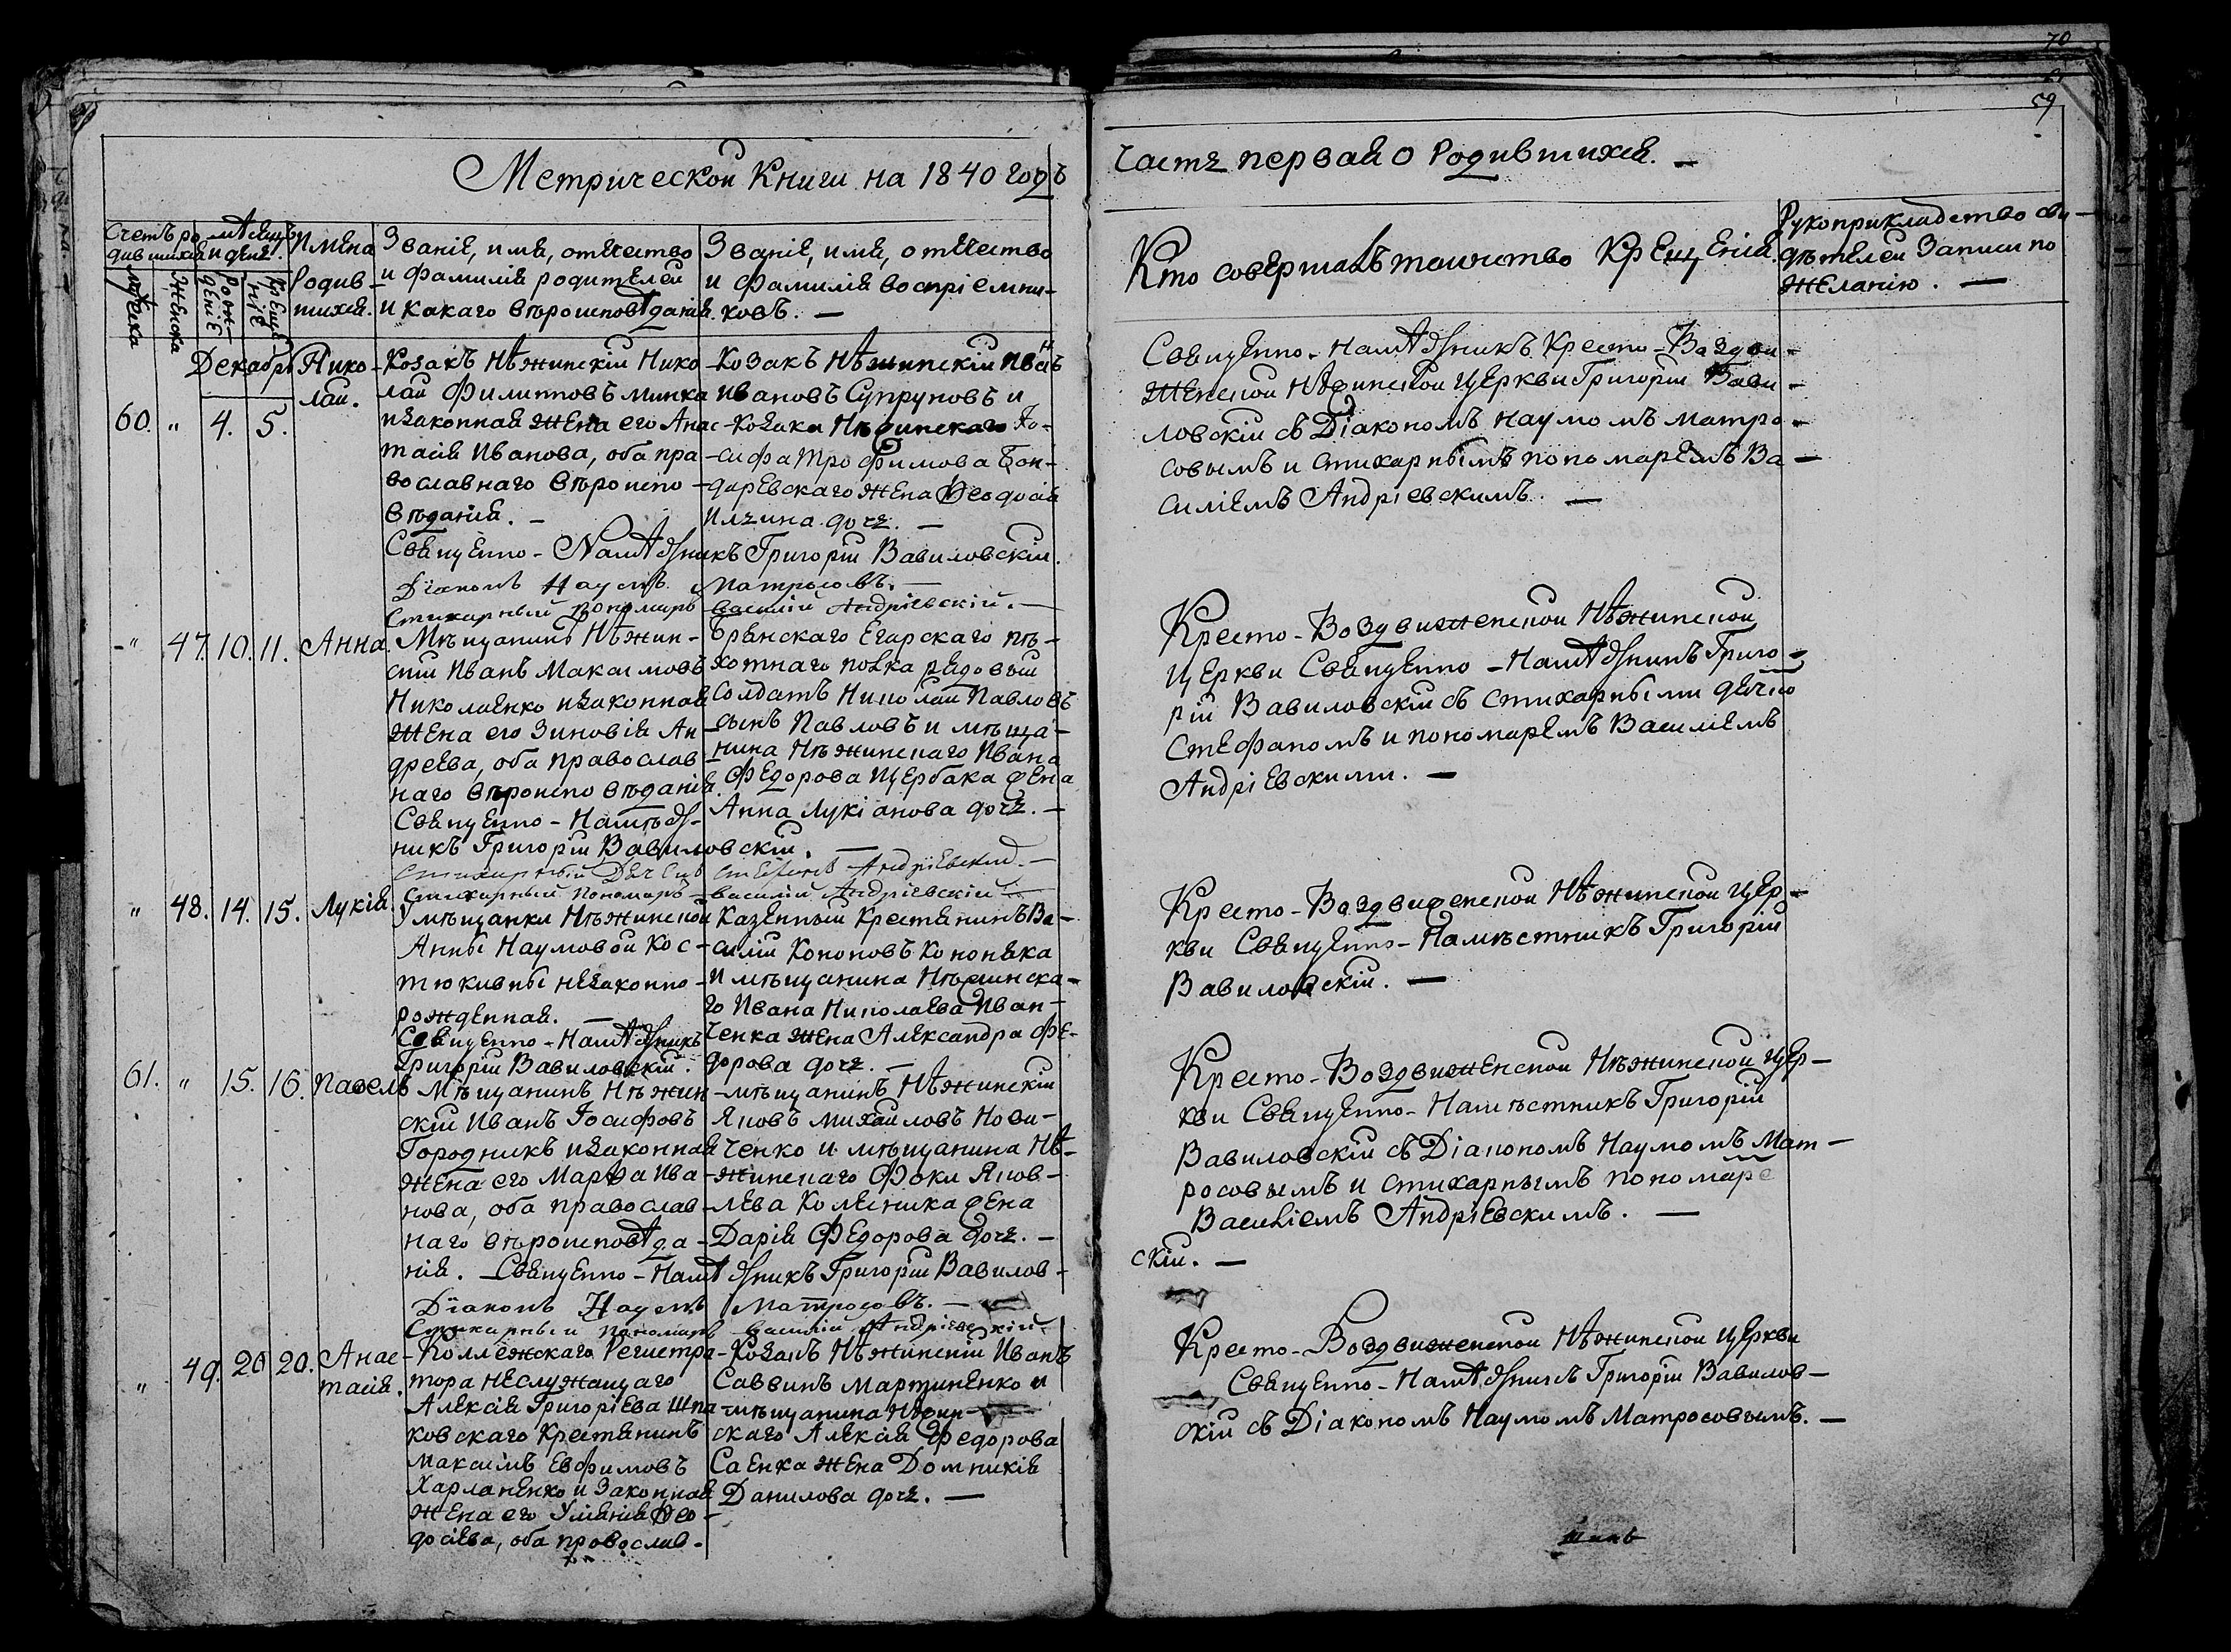 70
59
Метрической Книги на 1840 годъ
Часть первая о Родившихся. —
Счетъ ро-
дившихся
Мѣсяцъ
и день.
Мужеска
Женска
Рож-
деніе
Креще-
ніе
Имена
Родив-
шихся.
Званіе, имя, отчество
и фамилія родителей
и какаго вѣроисповѣданія.
Званіе, имя, отчество
и фамилія воспріемни-
ковъ. —
Кто совершалъ таинство Крещенія.
Рукоприкладство сви-
дѣтелей Записи по
желанію. —
Декабрь
60. " 4. 5.
Нико-
лай.
Козакъ Нѣжинскій Нико-
лай Филипповъ Минка
и законная жена его Анас-
тасія Иванова, оба пра-
вославнаго вѣроиспо-
вѣданія. —
Козакъ Нѣжинскій Иванъ
Ивановъ Супруновъ и
Козака Нѣжинскаго Іо-
сифа Трофимова Бон-
даревскаго жена Ѳеодосія
Ильина дочь. —
Священно-Намѣстникъ Григорій Вавиловскій.
Діаконъ Наумъ Матросовъ. —
Стихарный Пономарь Василій Андріевскій. —
Священно-Намѣстникъ Кресто-Воздви-
женской Нѣжинской Церкви Григорій Вави-
ловскій съ Діакономъ Наумомъ Матро-
совымъ и стихарнымъ пономаремъ Ва-
силіемъ Андріевскимъ. —
" 47. 10. 11. Анна.
Мѣщанинъ Нѣжин-
скій Иванъ Максимовъ
Николаенко и законная
жена его Зиновія Ан-
дреева, оба православ-
наго вѣроисповѣданія.
Брянскаго Егарскаго пѣ-
хотнаго полка рядовый
Солдатъ Николай Павловъ
сынъ Павловъ и мѣща-
нина Нѣжинскаго Ивана
Федорова Щербака жена
Анна Лукіанова дочь. —
Священно-Намѣст-
никъ Григорій Вавиловскій. —
Стихарный Дьячекъ Стефанъ Андріевскій. —
Стихарный Пономарь Василій Андріевскій —
Кресто-Воздвиженской Нѣжинской
Церкви Священно-Намѣстникъ Григо-
рій Вавиловскій съ Стихарными дьячко
Стефаномъ и пономаремъ Василіемъ
Андріевскими. —
" 48. 14. 15. Лукія.
У мѣщанки Нѣжинской
Анны Наумовой Кос-
тюкивны незаконно-
рожденная. —
Казенный Крестянинъ Ва-
силій Кононовъ Кононяка
и мѣщанина Нѣжинска-
го Ивана Николаева Иван-
ченка жена Александра Фе-
дорова дочь. —
Священно-Намѣстникъ
Григорій Вавиловскій.
Кресто-Воздвиженской Нѣжинской Цер-
кви Священно-Намѣстникъ Григорій
Вавиловскій. —
61. " 15. 16. Павелъ
Мѣщанинъ Нѣжин-
скій Иванъ Іосифовъ
Городникъ и законная
жена его Марѳа Ива-
нова, оба православ-
наго вѣроисповѣда-
нія. — Священно-Намѣстникъ Григорій Вавилов-
скій. —
мѣщанинъ Нѣжинскій
Яковъ Михайловъ Нови-
ченко и мѣщанина Нѣ-
жинскаго Фоки Яков-
лева Колесника жена
Дарія Федорова дочь. —
Діаконъ Наумъ Матросовъ. —
Стихарный Пономарь Василій Андріевскій.
Кресто-Воздвиженской Нѣжинской Цер-
кви Священно-Намѣстникъ Григорій
Вавиловскій съ Діакономъ Наумомъ Мат-
росовымъ и стихарнымъ пономаре
Василіемъ Андріевскимъ. —
" 49. 20 20. Анас-
тасія.
Коллежскаго Регистра-
тора неслужащаго
Алексія Григоріева Шпа-
ковскаго Крестянинъ
Максимъ Евфимовъ
Харланенко и Законная
жена его Уліянія Ѳео-
досіева, оба православ-
Козакъ Нѣжинскій Иванъ
Саввинъ Мартиненко и
мѣщанина Нѣжин-
скаго Алексія Федорова
Саенка жена Домникія
Данилова дочь. —
Кресто-Воздвиженской Нѣжинской Церкви
Священно-Намѣстникъ Григорій Вавилов-
скій съ Діакономъ Наумомъ Матросовымъ. —